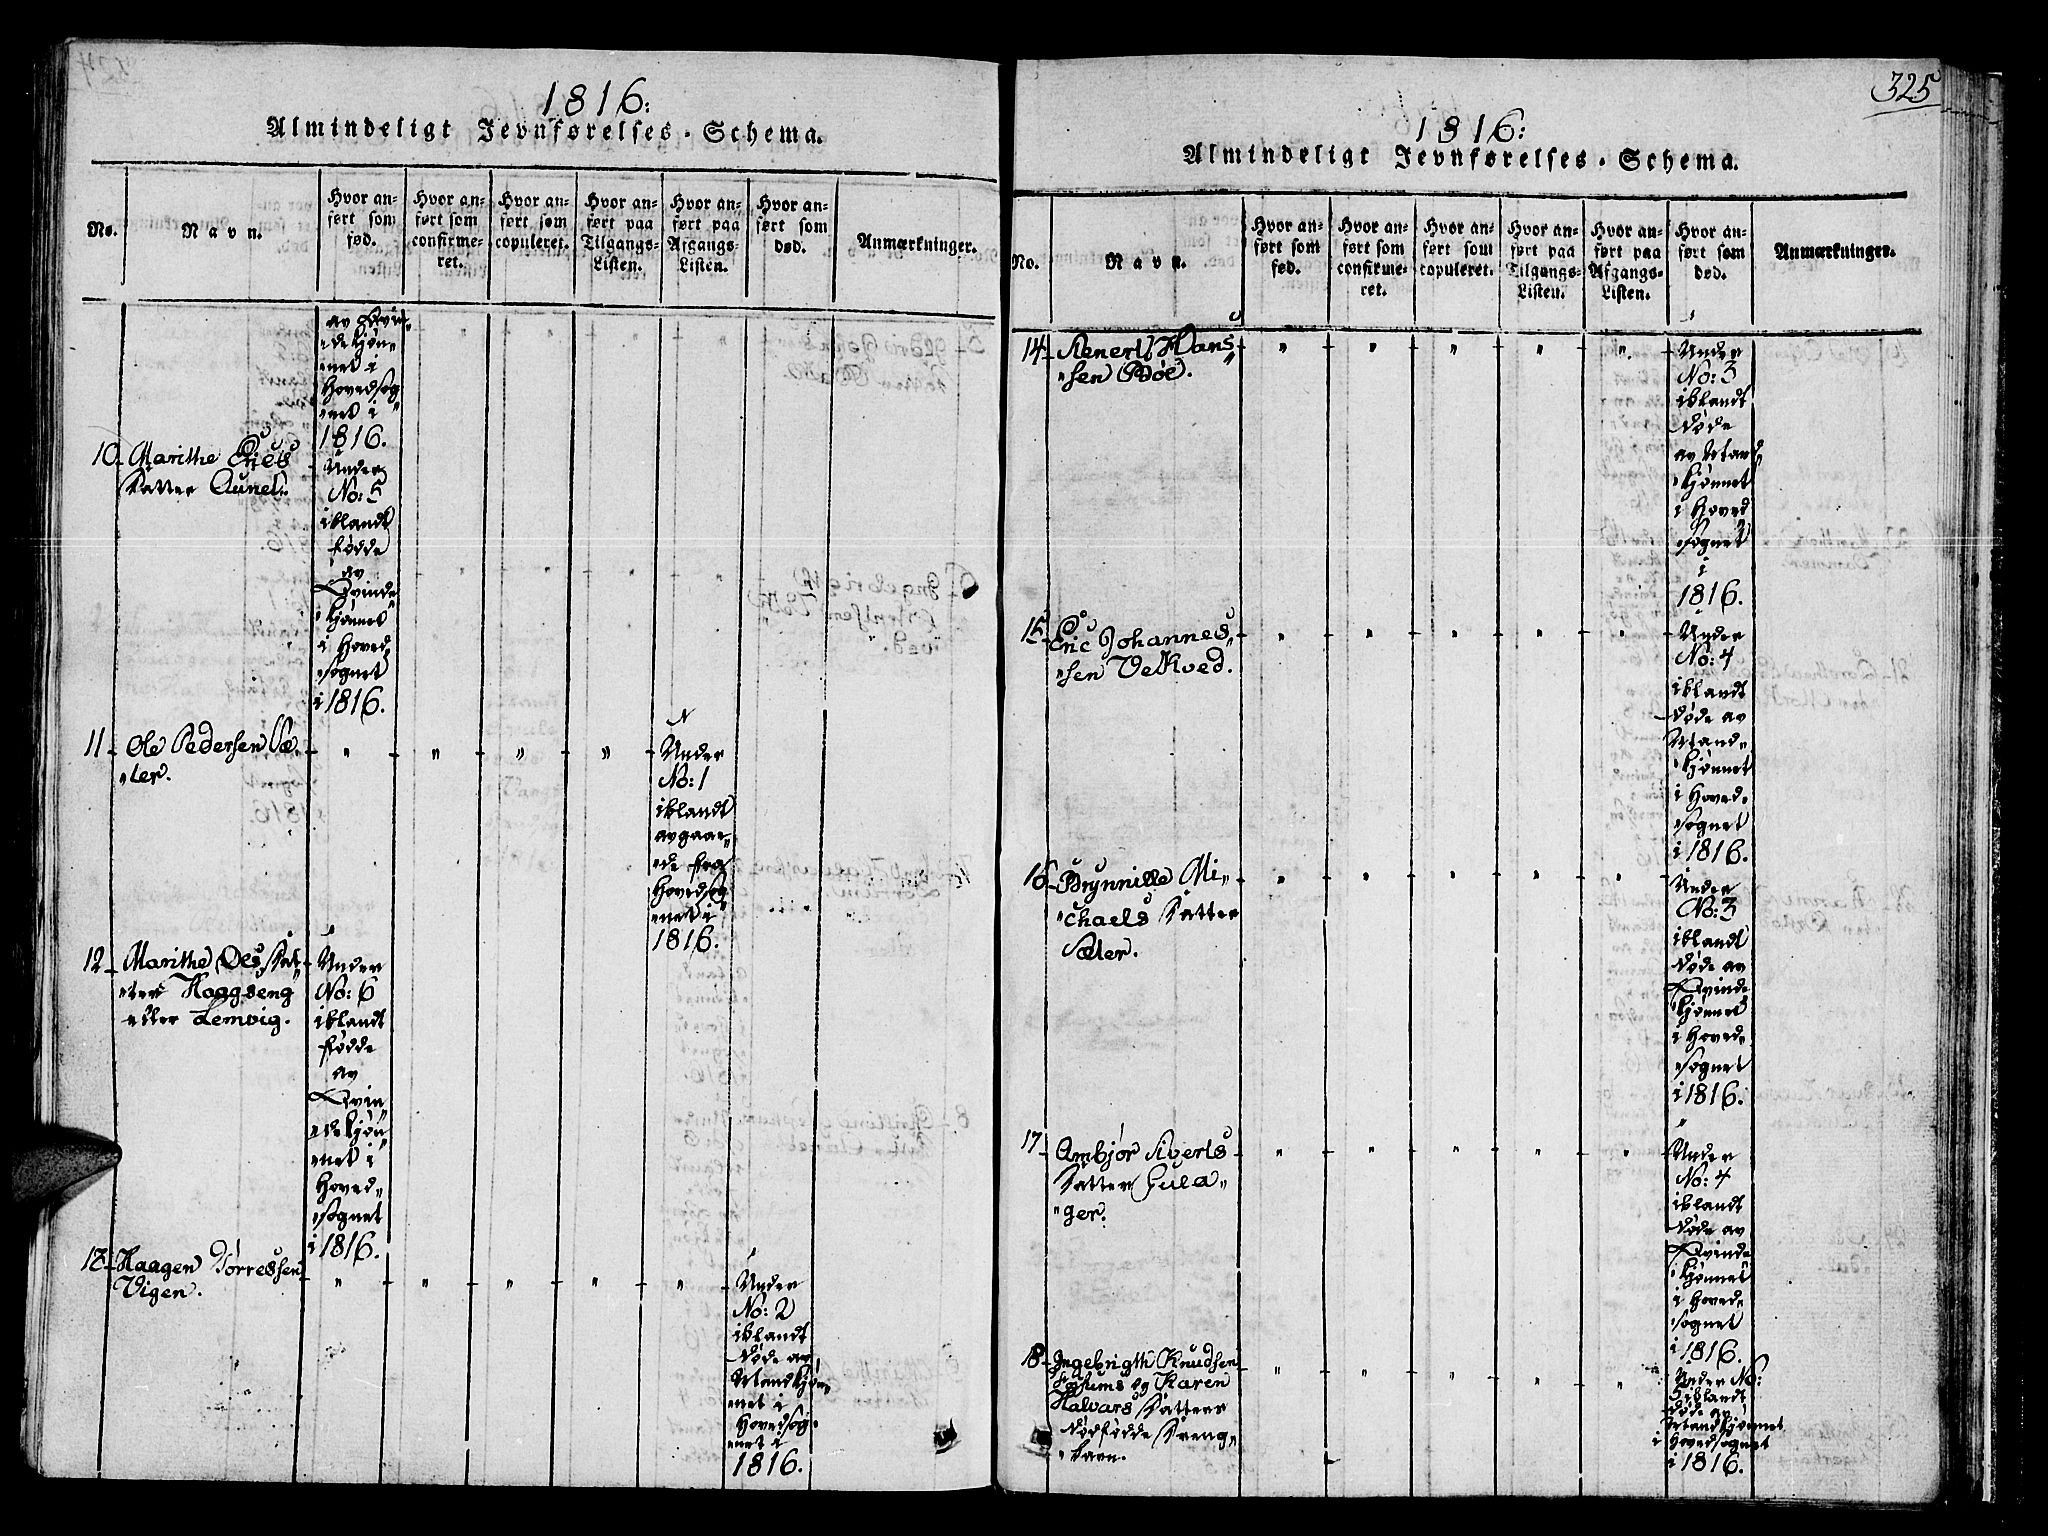 1816:
Almindeligt Jevnførelses-Schema.
No.
Navn.
Hvor an-
ført som
fød.
Hvor an-
ført som
confirme-
ret.
Hvor an-
ført som
copuleret.
Hvor an-
ført paa
Tilgangs-
Listen.
Hvor an-
ført paa
Afgangs-
Listen.
Hvor an-
ført som
død.
Anmærkninger.
av Qvin„
„dekjøn„
„net i
Hovedsog„
„net i
1816.
10. Marithe Erics
Datter Aunet.
Under
No: 5
iblandt
fødde
av
Qvinde„
„kjønnet
i Hoved„
„sognet
i 1816.
11. Ole Pedersen Sæ„
„ter.
Under
No: 1
iblandt
avgaae„
„de fra
Hovedsog„
„net i
1816.
12. Marithe Oles Dat„
„ter Haagseng
eller Lemvig.
Under
No: 6
iblandt
fødde
av
Qvin„
„dekjøn„
„net i
Hoved„
„sognet
i 1816.
13. Haagen Tørressen
Vigen.
Under
No: 2
iblandt
døde av
Mandkjøn„
„net i
Hovedsog„
„net i
1816.
325
1816:
Almindeligt Jevnførelses-Schema.
No.
Navn.
Hvor an-
ført som
fød.
Hvor an-
ført som
confirme-
ret.
Hvor an-
ført som
copuleret.
Hvor an-
ført paa
Tilgangs-
Listen.
Hvor an-
ført paa
Afgangs-
Listen.
Hvor an-
ført som
død.
Anmærkninger.
14. Hans„
„sen Bøe.
Under
No: 3
iblandt
døde
av Mand„
„kjønnet
i Hoved
„sognet
i
1816.
15. Eric Johannes„
„sen Vekved.
Under
No: 4
iblandt
døde av
Mand„
„kjønnet
i Hoved„
„sognet
i 1816.
16. Brynnille Mi„
„chaels Datter
Sæter.
Under
No: 3
iblandt
døde av
Qvinde„
„kjønnet
i Hoved„
„sognet
i 1816.
17. Ambjør Siverts
Datter Gula„
„ger.
Under
No: 4
iblandt
døde av
Qvinde„
„kjønnet
i Hoved„
„sognet
i 1816.
18. Ingebrigth Knudsen
og Karen
Halvars Datters
dødfødde Dreng„
„barn.
Under No:
5 iblandt
døde av
Mandkjønnet
i Hovedsognet
i 1816.